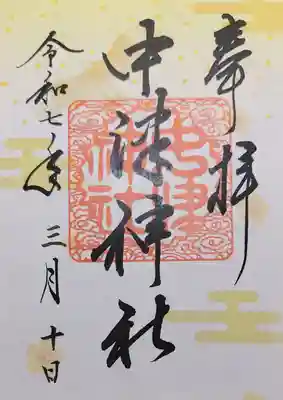 奉拝
中津神社
令和七年
三月十日